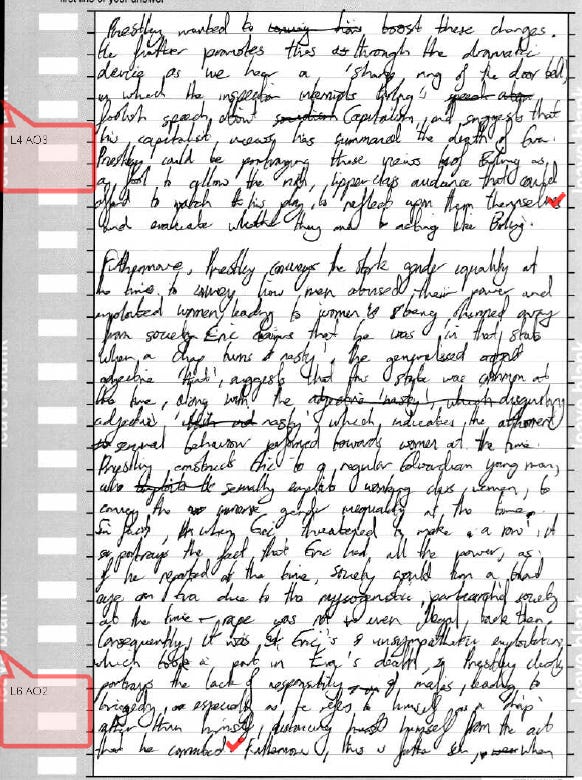 first line of your answer
Priestley wanted to boost these changes.
He further promotes this through the dramatic
device as we hear a 'sharp ring of the door bell',
in which the inspector interrupts Birling's
foolish speech about Capitalism, and suggests that
his capitalist views has summoned the death of Eva.
Priestley could be portraying these views of Birling as
a tool to allow the rich, upper class audience that could
afford to watch his play, to reflect upon themselves
and evaluate whether they are acting like Birling.
Furthermore, Priestley conveys the stark gender equality at
the time, to convey how men abused their power and
exploited women leading to women being shunned away
from society. Eric claims that he was 'in that state
when a chap turns nasty', the generalised
adjective 'that', suggests that this state was common at
the time, along with the disgusting
adjective 'nasty' which indicates the
sexual behaviour performed towards women at the time.
Priestley constructs Eric to a regular Edwardian young man,
who sexually exploits working class women, to
convey the gender inequality at the time.
In fact, when Eric 'threatened to make a row', it
portrays the fact that Eric had all the power, as
if he reported at the time, society would turn a blind
eye on Eva due to the patriarchal society
at the time - rape was not even illegal back then.
Consequently, it was Eric's unsympathetic exploitation
which took a part in Eva's death, Priestley clearly
portrays the lack of responsibility of males, leading to
tragedy, especially as he refers to himself as a 'chap'
rather than himself, distancing himself from the act
that he commited. Furthermore, this is when
L4 AO3
L6 AO2